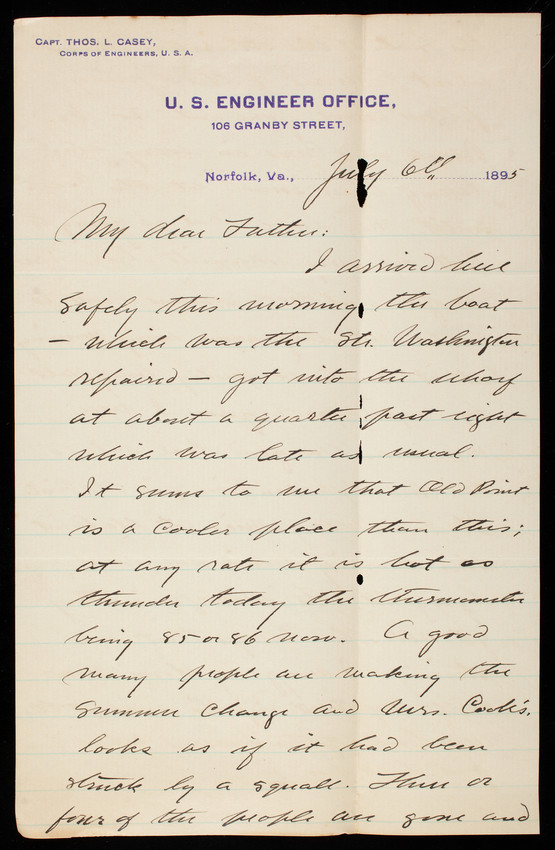 CAPT. THOS. L. CASEY,
CORPS OF ENGINEERS, U. S. A.
U. S. ENGINEER OFFICE,
106 GRANBY STREET,
Norfolk, Va., July 6th 1895
My dear Father:
I arrived here
safely this morning the boat
– which was the Str. Washington
repaired – got into the wharf
at about a quarter past eight
which was late as usual.
It seems to me that Old Point
is a cooler place than this;
at any rate it is hot as
thunder today the thermometer
being 85 or 86 now. A good
many people are making the
summer change and Mrs. Cook's.
looks as if it had been
struck by a squall. Three or
four of the people are gone and